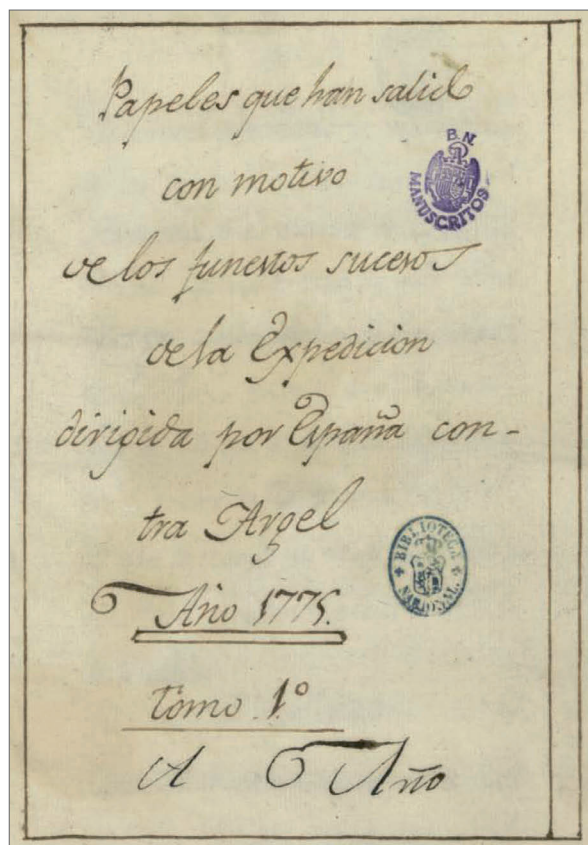 Papeles que han salido
B. N.
MANUSCRITOS
con motivo
de los funestos sucesos
de la Expedicion
dirigida por España con-
tra Argel
BIBLIOTECA
NACIONAL
Año 1775.
Tomo 1.º
A Año